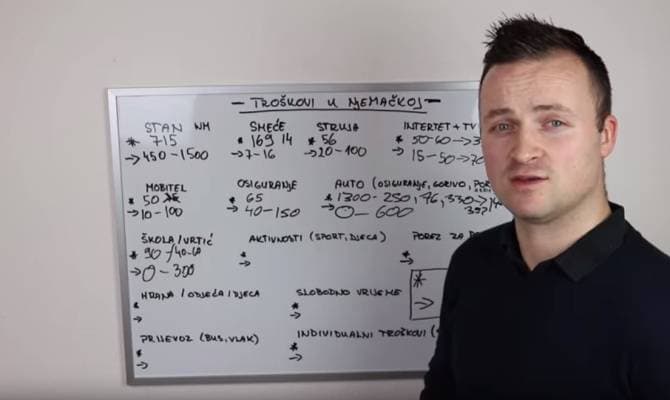 — TROŠKOVI U NJEMAČKOJ —
STAN WM
* 715
→ 450 - 1500
SMEĆE
* 169 14
→ 7 - 16
STRUJA
* 56
→ 20 - 100
INTERTET + TV
* 50 - 60 →
15 - 50 → 70
MOBITEL
* 50
→ 10 - 100
OSIGURANJE
* 65
→ 40 - 150
AUTO (OSIGURANJE, GORIVO, POR
* 1300 - 250, 76, 330 →
→ 0 - 600
ŠKOLA / VRTIĆ
* 90 / 40-60
→ 0 - 300
AKTIVNOSTI (SPORT, DJECA)
*
→
POREZ ZA
*
→
HRANA / ODJEĆA / DJECA
*
→
SLOBODNO VRIJEME
*
→
PRIJEVOZ (BUS, VLAK)
*
→
INDIVIDUALNI TROŠKOVI (
*
→